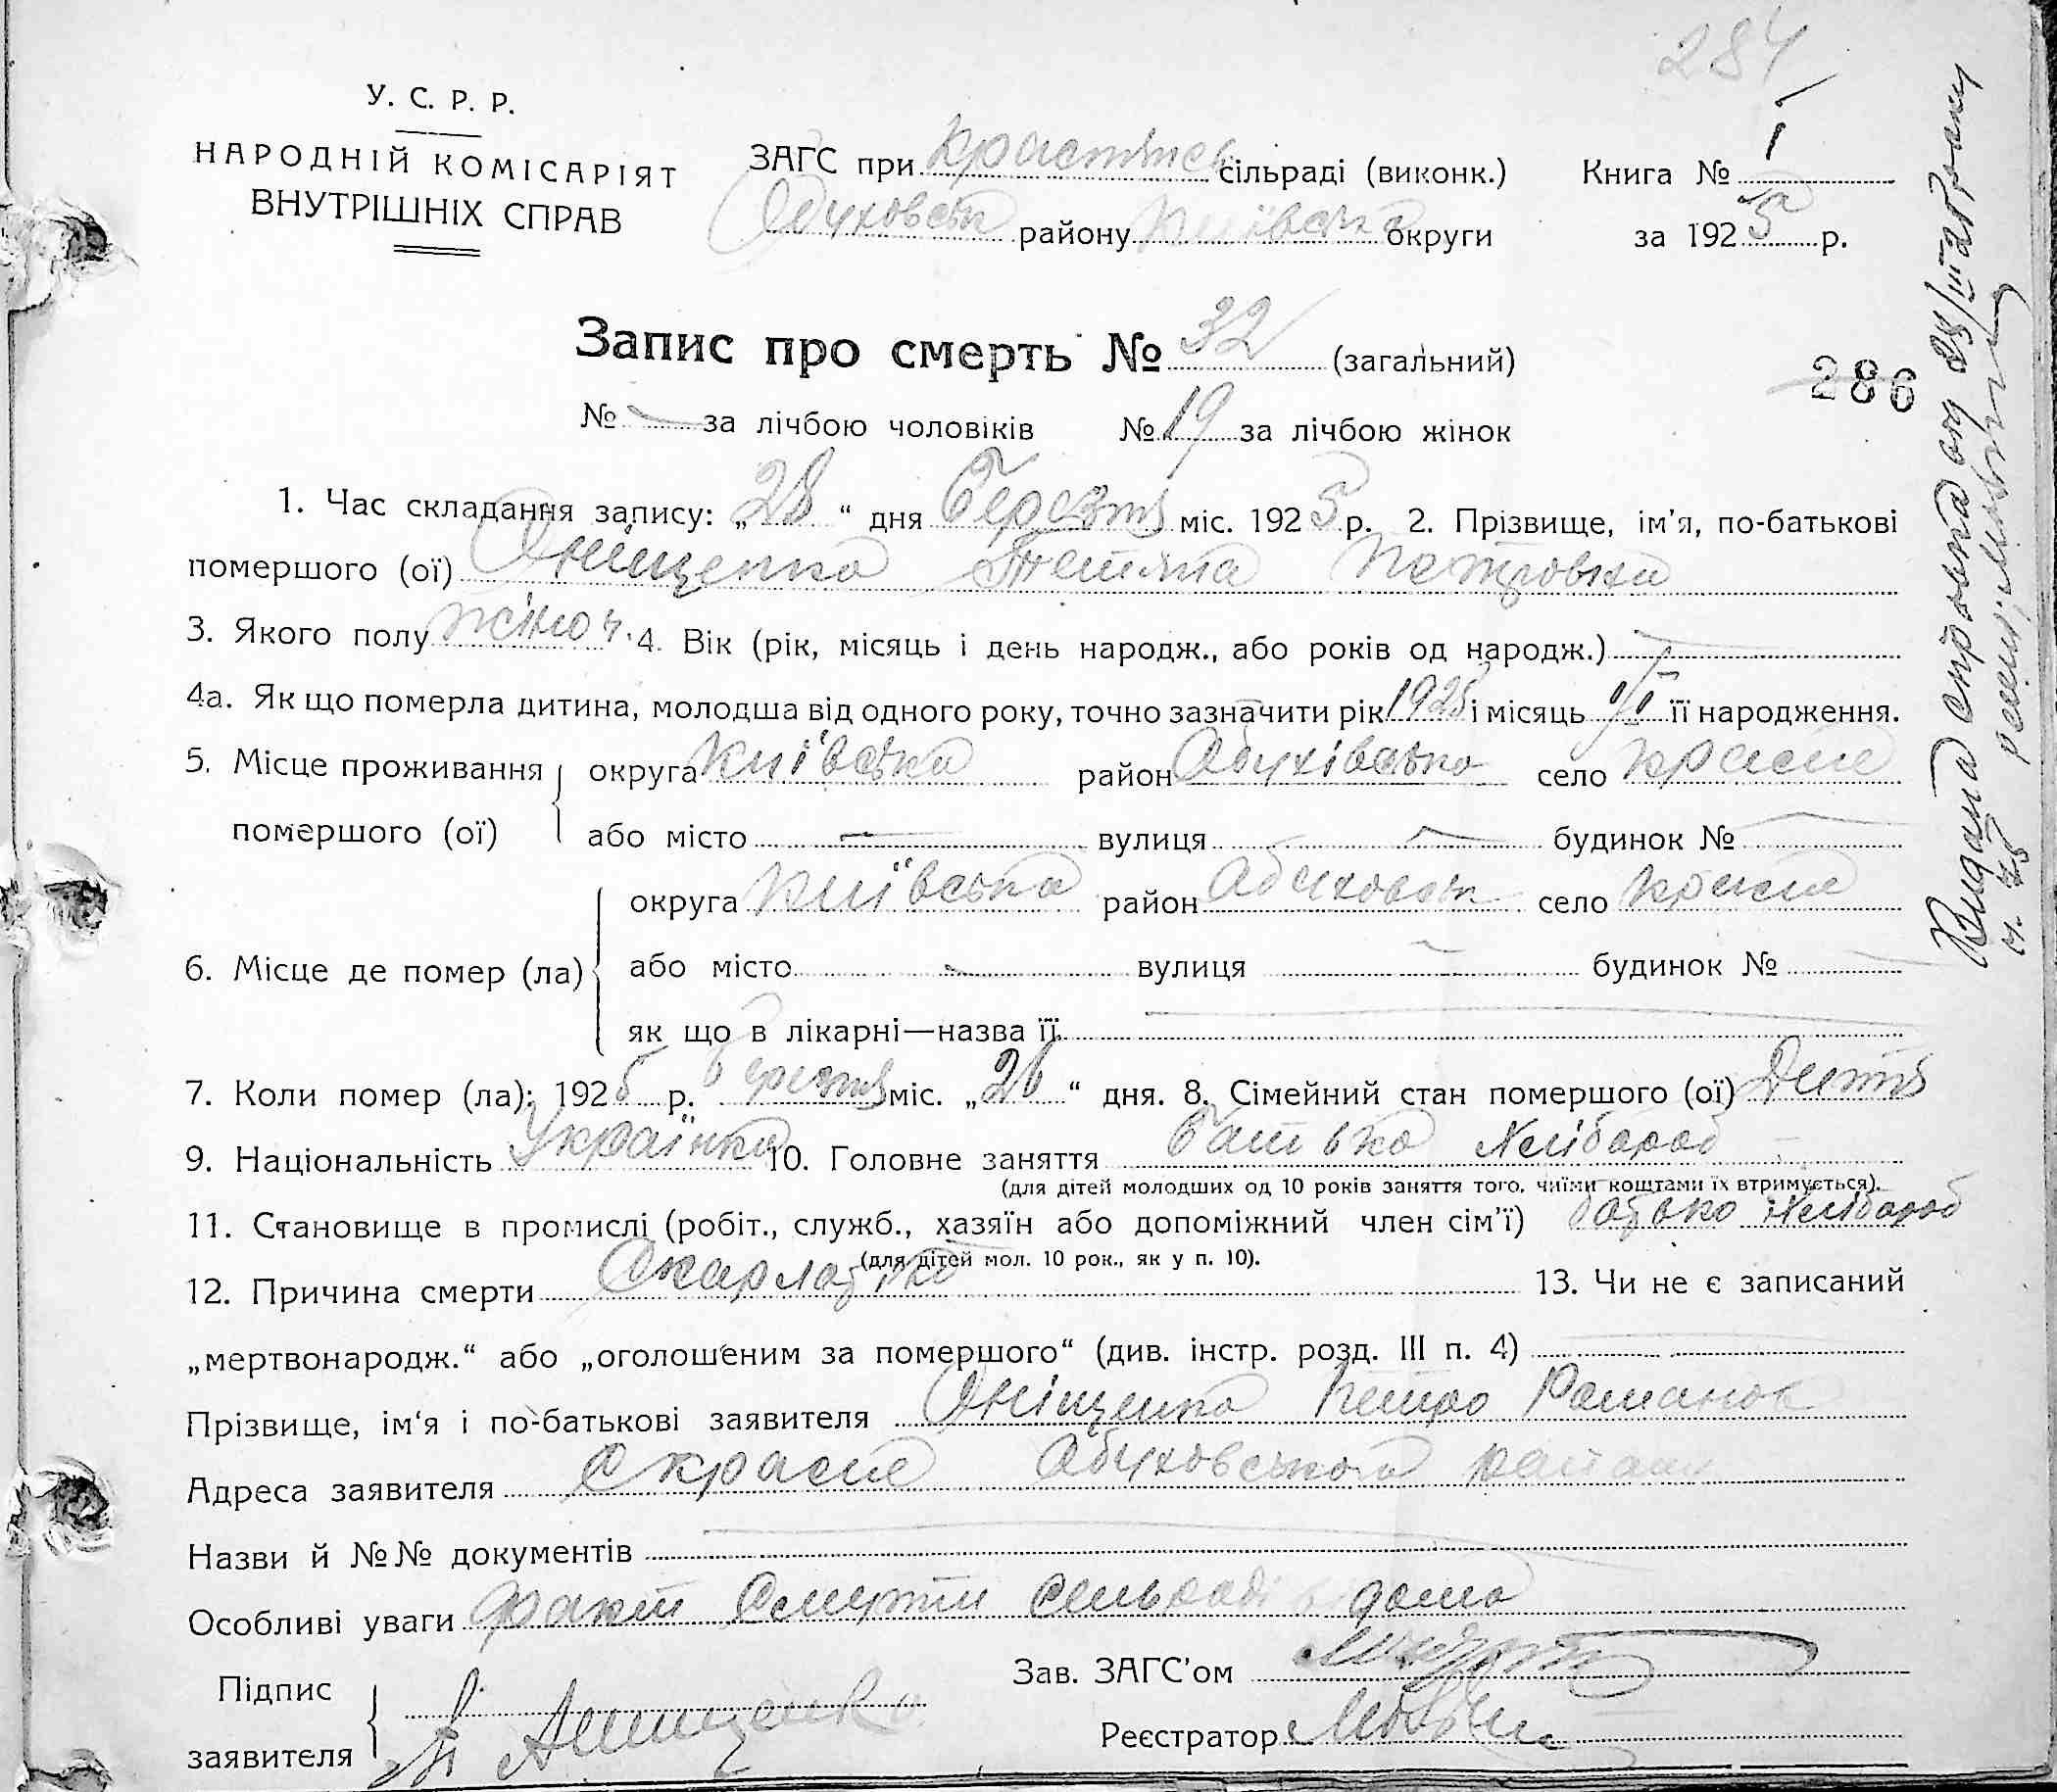 284
У. С. Р. Р.
НАРОДНІЙ КОМІСАРІЯТ
ВНУТРІШНІХ СПРАВ
ЗАГС при сільраді (виконк.)
Обуховськ району Київська округи
Книга № 1
за 1925 р.
Запис про смерть № 32 (загальний)
286
№ — за лічбою чоловіків № 19 за лічбою жінок
1. Час складання запису: „28“ дня Березня міс. 1925 р. 2. Прізвище, ім'я, по-батькові
помершого (ої) Оніщенко Тетяна Петровна
3. Якого полу жіноч. 4. Вік (рік, місяць і день народж., або років од народж.) —
4а. Як що померла дитина, молодша від одного року, точно зазначити рік 1925 і місяць її народження.
5. Місце проживання округа Київська район Обухівсько село Красне
помершого (ої) або місто — вулиця — будинок № —
округа Київська район Обуховськ село Красне
6. Місце де помер (ла) або місто — вулиця — будинок № —
як що в лікарні—назва її —
7. Коли помер (ла): 1925 р. березня міс. „26“ дня. 8. Сімейний стан помершого (ої) Дитя
9. Національність Українка 10. Головне заняття батько хлібороб
(для дітей молодших од 10 років заняття того, чиїми коштами їх втримується).
11. Становище в промислі (робіт., служб., хазяїн або допоміжний член сім'ї) батько хлібороб
(для дітей мол. 10 рок., як у п. 10).
12. Причина смерти Скарлатина 13. Чи не є записаний
„мертвонародж.“ або „оголошеним за помершого“ (див. інстр. розд. III п. 4) —
Прізвище, ім'я і по-батькові заявителя Оніщенко Петро Романов
Адреса заявителя с красне Обуховського району
Назви й №№ документів —
Особливі уваги факт смерти сельраді
Підпис
заявителя П Анищенко
Зав. ЗАГС'ом
Реєстратор
Видана справка од 28/III 25 Року